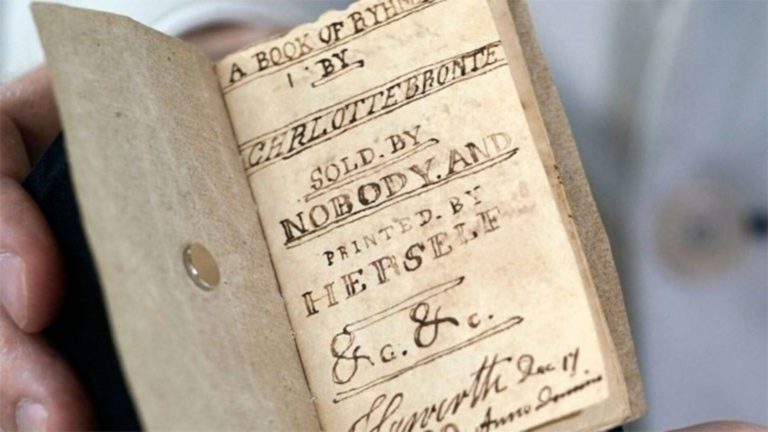 A BOOK OF RYHM
BY
CHARLOTTE BRONTE
SOLD. BY
NOBODY. AND
PRINTED. BY
HERSELF
&c. &c.
Haworth Dec 17.
Anno domino